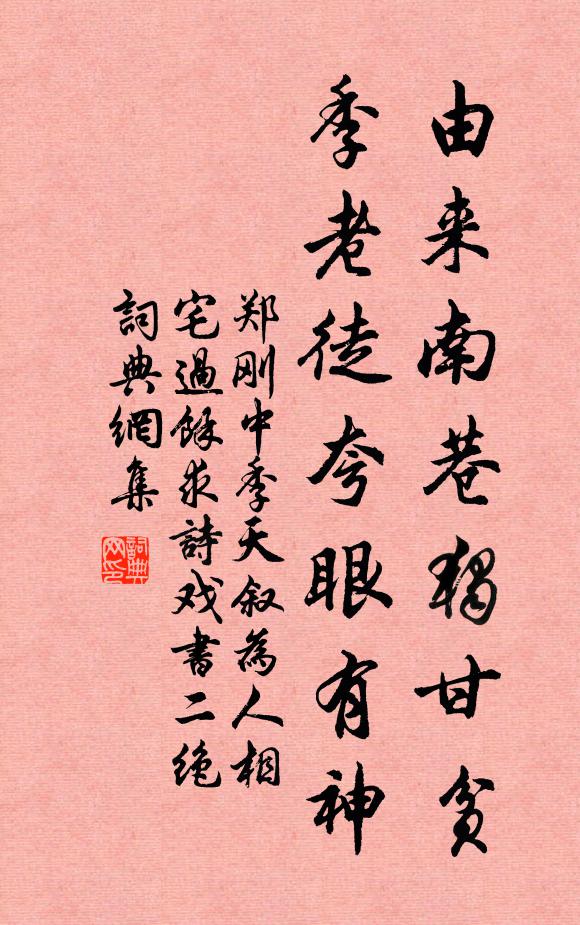 由来南巷独甘贫
季老徒夸眼有神
郑刚中季天叙為人相
宅過餘求詩戏書二绝
詞典網集
詞典网印